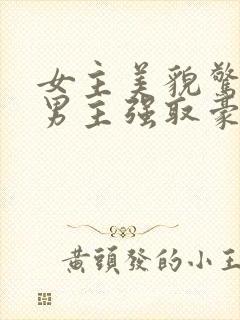 女主美貌驚
男主强取豪
黃頭發的小王